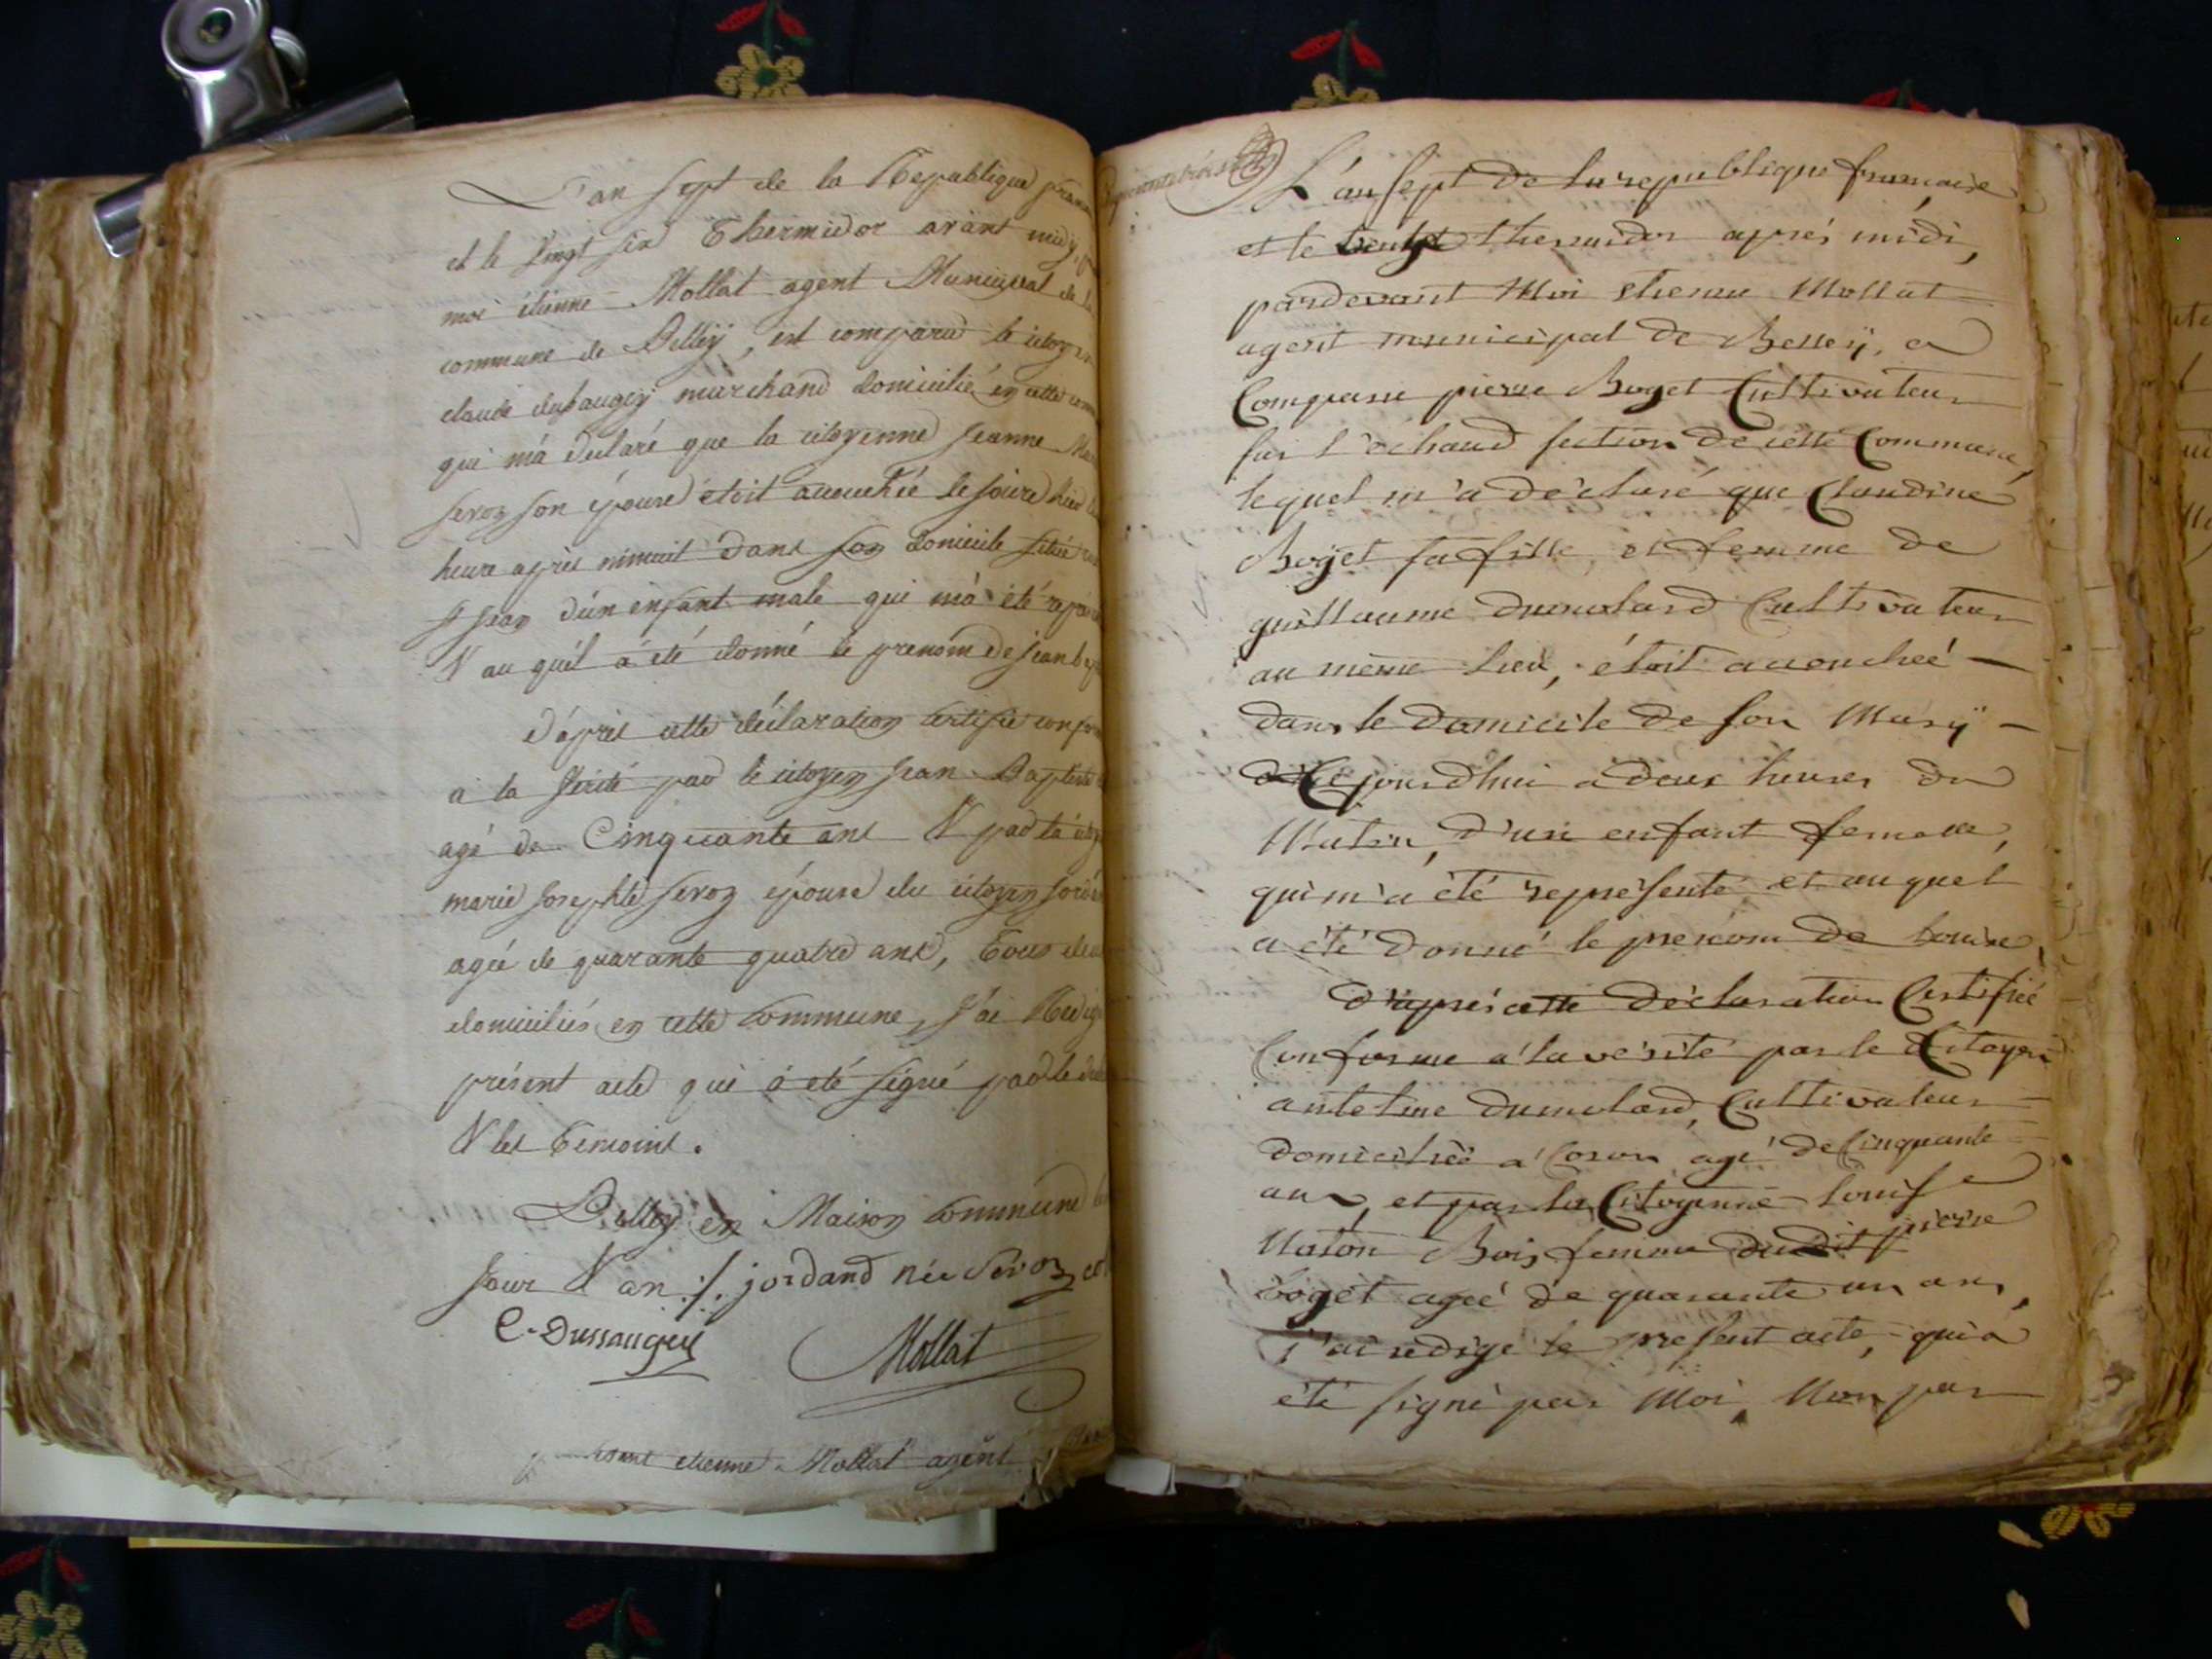 L'an sept de la Republique
et le vingt six Thermidor avant midy,
moi etienne Mollat agent Municipal de la
commune de Belleÿ, est comparu le citoyen
claude dussaugeÿ marchand domicilié en cette
qui m'a declaré que la citoyenne jeanne
sevoz son épouse étoit accouchée
heure après minuit dans son domicile située
d'un enfant male qui m'a été
& auquél a été donné le prenom de jean
D'aprés cette déclaration certifiée
a la vérité par le citoyen jean Baptiste
agé de Cinquante ans & par la
marie josephte sevoz épouse du citoyen
agée de quarante quatre ans, Tous
domiciliés en cette commune, j'ai
présent acte qui a eté signé par le
& les temoins.
Belleÿ en Maison commune
jour & an ./. jordand née Sevoz
C. Dussaugey
Mollat
etienne Mollat agent
L'an sept de la republique francaise
et le thermidor aprés midi,
pardevant Moi etienne Mollat
agent municipal de Belleÿ, a
Comparu pierre Boget Cultivateur
sur l'échaud section de cette Commune,
lequel m'a déclaré que Claudine
Boget sa fille, et femme de
guillaume dumolard Cultivateur
au même lieu, étoit accouchée
dans le domicile de son Marÿ
jourdhui a deux heures du
Matin, d'un enfant femelle,
qui m'a été représenté et auquel
a été donné le prenom de Louise
d'aprés cette déclaration Certifiée
Conforme a la verité par le Citoyen
antelme dumolard, Cultivateur
domicilié a Coron agé de Cinquante
ans, et par la Citoyenne Louise
Bois femme dudit pierre
boget agée de quarante un ans,
j'ai redigé le present acte, qui a
été signé par Moi, Non par